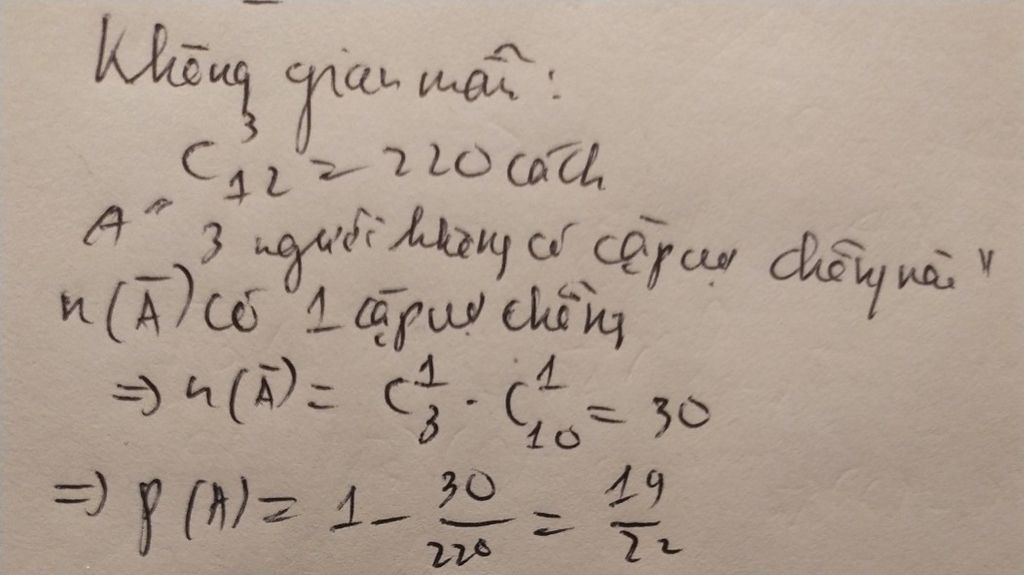 Không gian mẫu:
C₁₂³ = 220 cách
A " 3 người không có cặp vợ chồng nào "
n(A̅) có 1 cặp vợ chồng
=> n(A̅) = C₃¹ . C₁₀¹ = 30
=> p(A) = 1 - 30/220 = 19/22